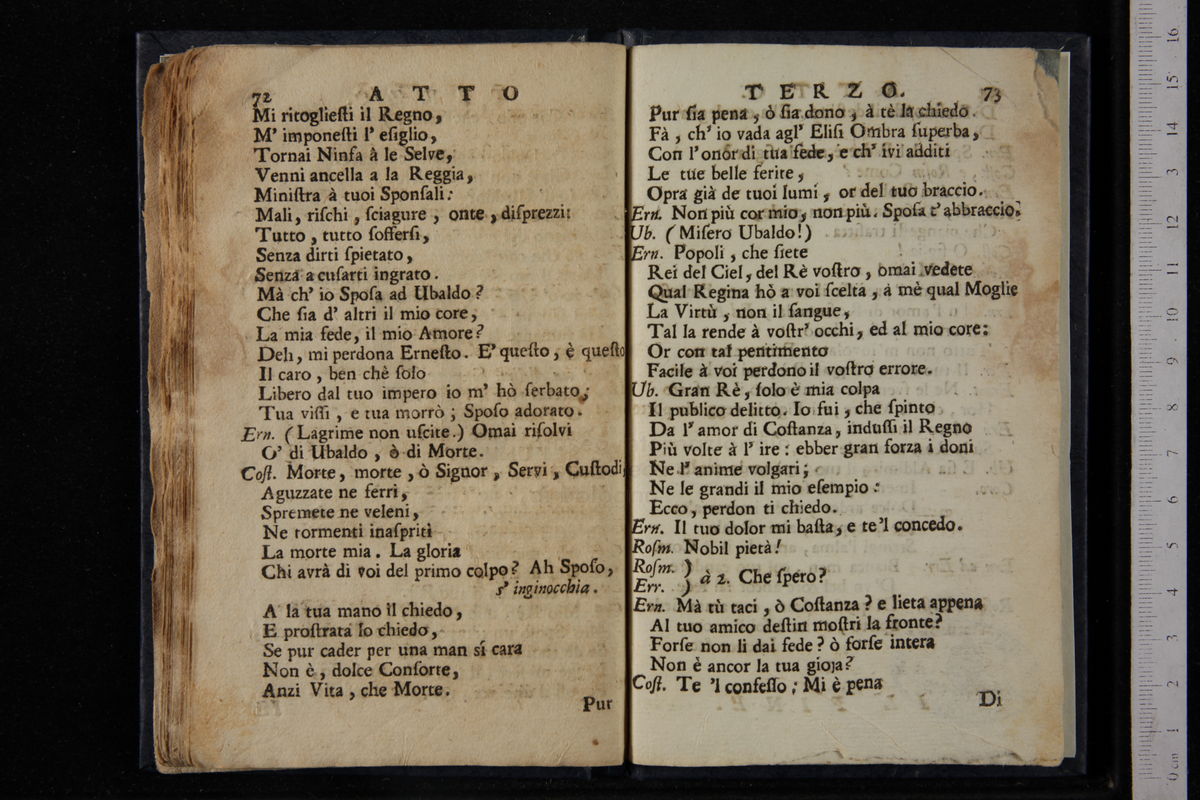 72 ATTO
Mi ritoglieſti il Regno,
M' imponeſti l' eſiglio,
Tornai Ninfa à le Selve,
Venni ancella a la Reggia,
Miniſtra à tuoi Sponſali:
Mali, riſchi, ſciagure, onte, diſprezzi:
Tutto, tutto ſofferſi,
Senza dirti ſpietato,
Senza acuſarti ingrato.
Mà ch' io Spoſa ad Ubaldo?
Che ſia d' altri il mio core,
La mia fede, il mio Amore?
Deh, mi perdona Erneſto. E' queſto, è queſto
Il caro, ben chè ſolo
Libero dal tuo impero io m' hò ſerbato;
Tua viſſi, e tua morrò; Spoſo adorato.
Ern. (Lagrime non uſcite.) Omai riſolvi
O' di Ubaldo, ò di Morte.
Coſt. Morte, morte, ò Signor, Servi, Cuſtodi,
Aguzzate ne ferri,
Spremete ne veleni,
Ne tormenti inaſpriti
La morte mia. La gloria
Chi avrà di voi del primo colpo? Ah Spoſo,
s' inginocchia.
A la tua mano il chiedo,
E proſtrata lo chiedo,
Se pur cader per una man sí cara
Non è, dolce Conſorte,
Anzi Vita, che Morte.
Pur
TERZO. 73
Pur ſia pena, ò ſia dono, à tè la chiedo.
Fà, ch' io vada agl' Eliſi Ombra ſuperba,
Con l'onor di tua fede, e ch' ivi additi
Le tue belle ferite,
Opra già de tuoi lumi, or del tuo braccio.
Ern. Non più cor mio, non più. Spoſa t' abbraccio.
Ub. (Miſero Ubaldo!)
Ern. Popoli, che ſiete
Rei del Ciel, del Rè voſtro, omai vedete
Qual Regina hò a voi ſcelta, a mè qual Moglie
La Virtù, non il ſangue,
Tal la rende à voſtr' occhi, ed al mio core:
Or con tal pentimento
Facile à voi perdono il voſtro errore.
Ub. Gran Rè, ſolo è mia colpa
Il publico delitto. Io fui, che ſpinto
Da l' amor di Coſtanza, induſſi il Regno
Più volte à l' ire: ebber gran forza i doni
Ne l' anime volgari;
Ne le grandi il mio eſempio:
Ecco, perdon ti chiedo.
Ern. Il tuo dolor mi baſta, e te'l concedo.
Roſm. Nobil pietà!
Roſm. )
Err. ) à 2. Che ſpero?
Ern. Mà tù taci, ò Coſtanza? e lieta appena
Al tuo amico deſtin moſtri la fronte?
Forſe non li dai fede? ò forſe intera
Non è ancor la tua gioja?
Coſt. Te 'l confeſſo; Mi è pena
Di
0 cm 1 2 3 4 5 6 7 8 9 10 11 12 13 14 15 16